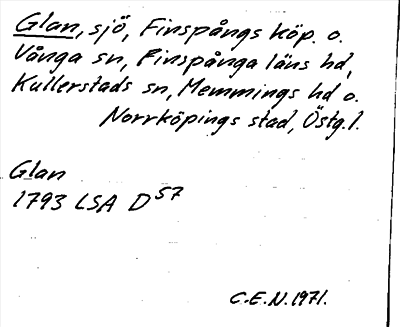 Glan, sjö, Finspångs köp. o.
Vånga sn, Finspånga läns hd,
Kullerstads sn, Memmings hd o.
Norrköpings stad, Östg.l.
Glan
1793 LSA D57
C.E.N. 1971.